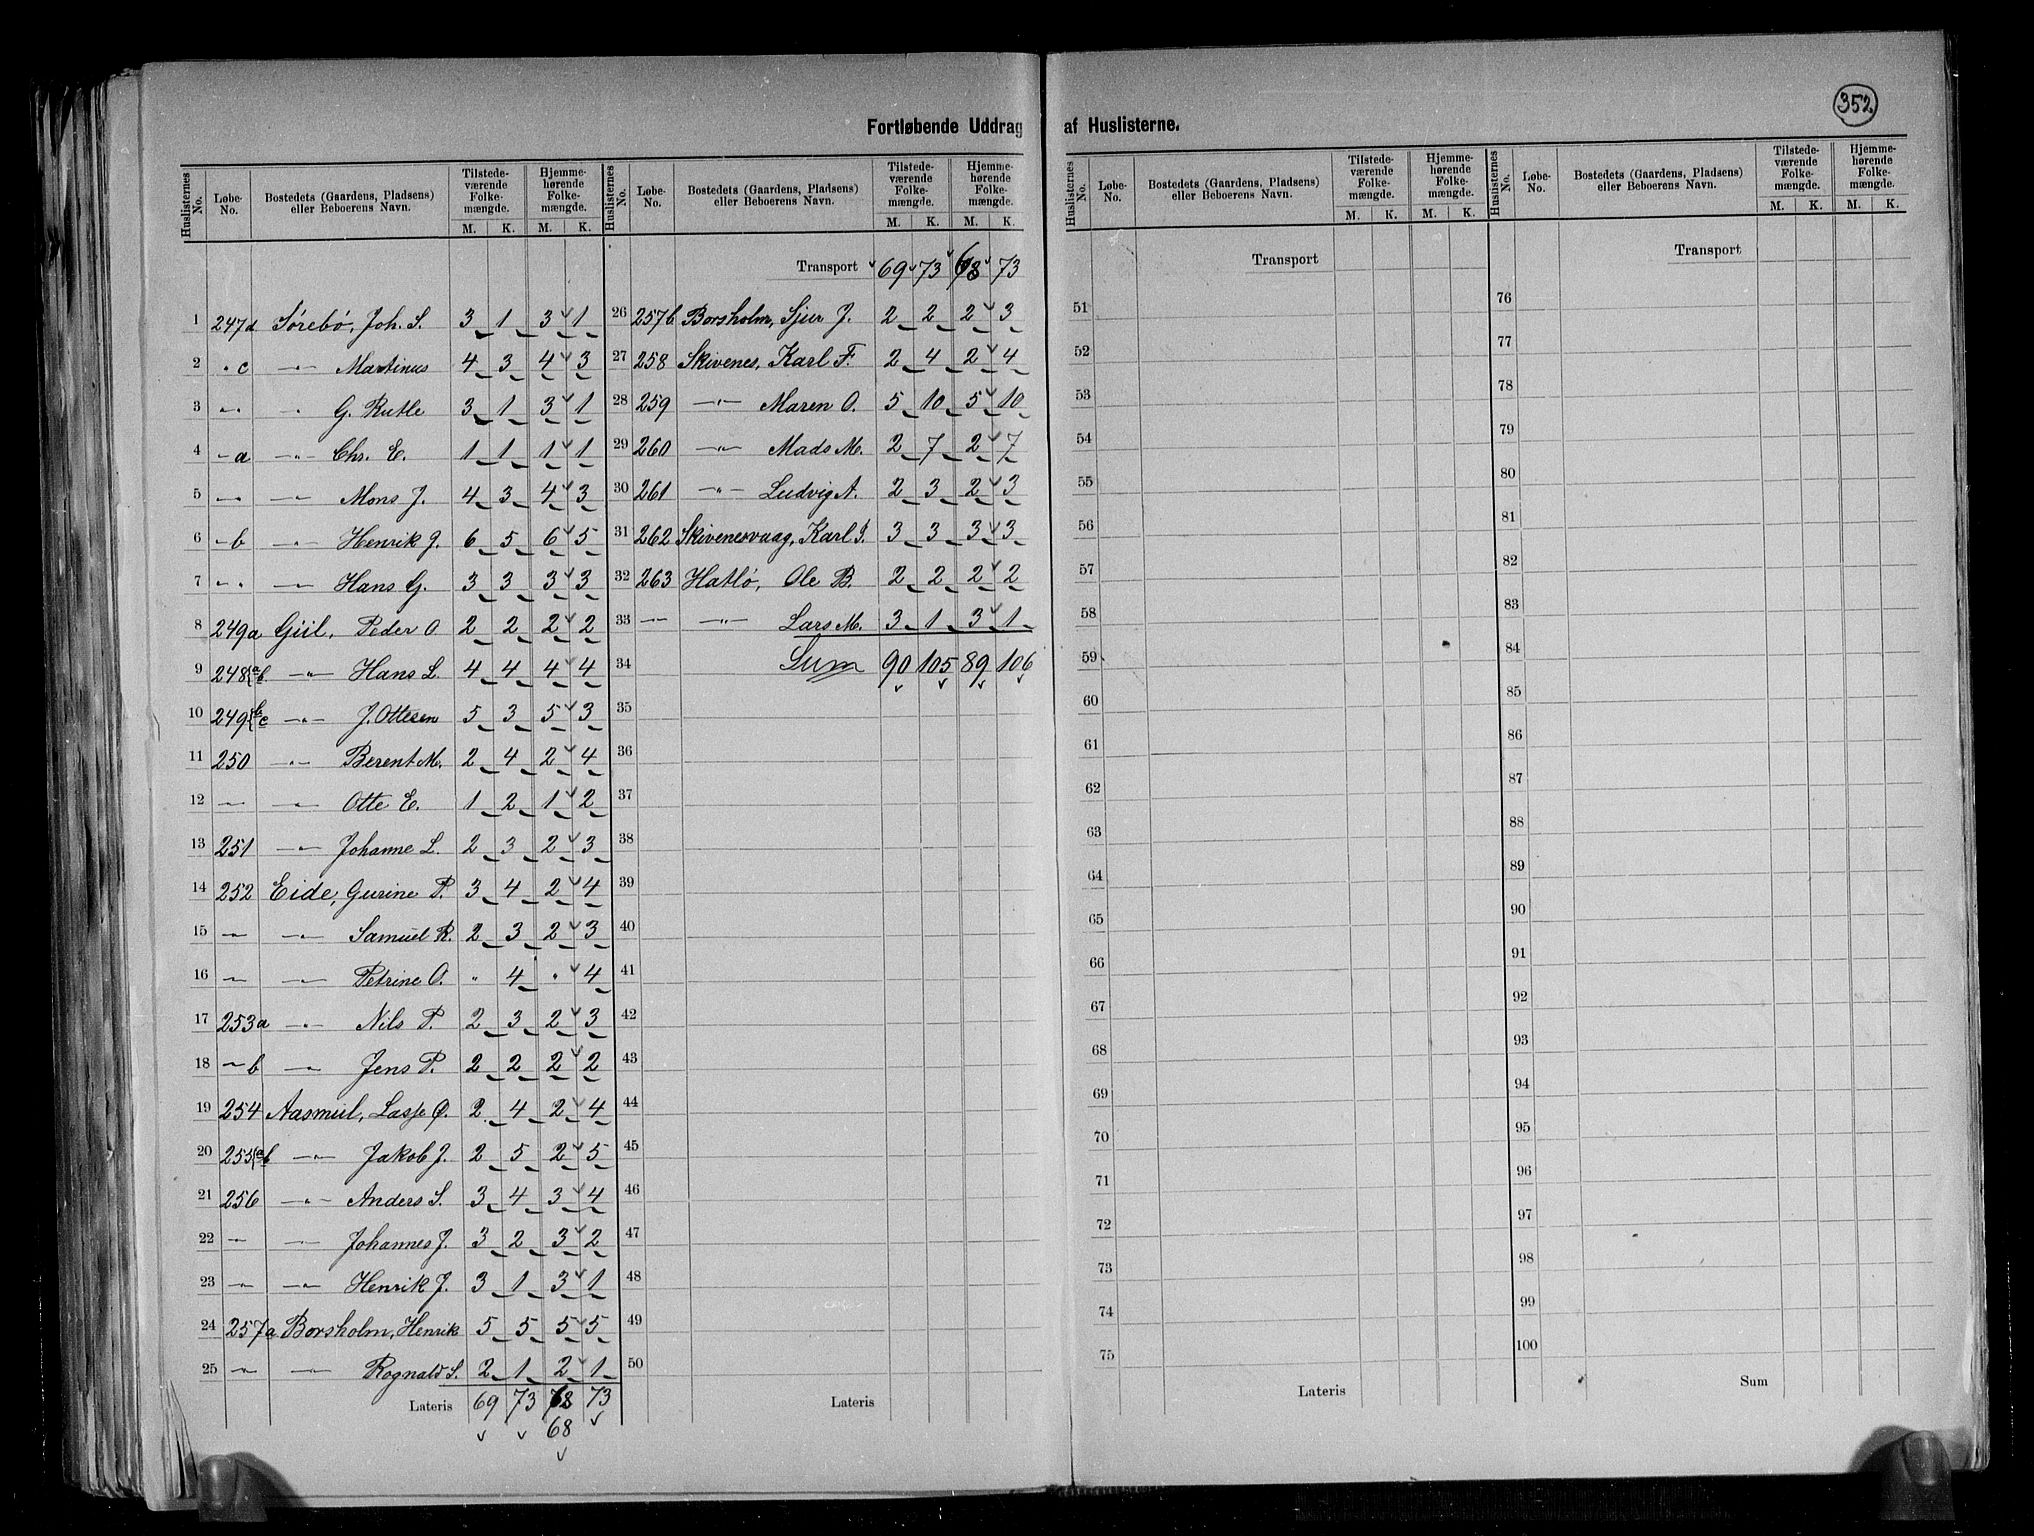 352
Fortløbende Uddrag af Huslisterne.
Huslisternes No. Løbe-No. Bostedets (Gaardens, Pladsens) eller Beboerens Navn. Tilstede-værende Folke-mængde. M. K. Hjemme-hørende Folke-mængde. M. K.
1 247d Sørebø, Joh. S. 3 1 3 1
2 " c " Martinus 4 3 4 3
3 " " G. Rutle 3 1 3 1
4 " a " Chr. E. 1 1 1 1
5 " " Mons J. 4 3 4 3
6 " b " Henrik J. 6 5 6 5
7 " " Hans G. 3 3 3 3
8 249a Giil, Peder O. 2 2 2 2
9 248{a b " Hans L. 4 4 4 4
10 249{b c " J. Ottesen 5 3 5 3
11 250 " Berent M. 2 4 2 4
12 " " Otte E. 1 2 1 2
13 251 " Johanne L. 2 3 2 3
14 252 Eide, Gurine P. 3 4 2 4
15 " " Samuel R. 2 3 2 3
16 " " Petrine O. " 4 " 4
17 253a " Nils P. 2 3 2 3
18 " b " Jens P. 2 2 2 2
19 254 Aasmul, Lasse O. 2 4 2 4
20 255{a b " Jakob J. 2 5 2 5
21 256 " Anders S. 3 4 3 4
22 " " Johannes J. 3 2 3 2
23 " " Henrik J. 3 1 3 1
24 257a Borsholm, Henrik 5 5 5 5
25 " " Rognald S. 2 1 2 1
Lateris 69 73 73
68
Huslisternes No. Løbe-No. Bostedets (Gaardens, Pladsens) eller Beboerens Navn. Tilstede-værende Folke-mængde. M. K. Hjemme-hørende Folke-mængde. M. K.
Transport 69 73 68 73
26 257b Borsholm, Sjur J. 2 2 2 3
27 258 Skivenes, Karl F. 2 4 2 4
28 259 " Maren O. 5 10 5 10
29 260 " Mads M. 2 7 2 7
30 261 " Ludvig A. 2 3 2 3
31 262 Skivenesvaag, Karl J. 3 3 3 3
32 263 Hatlø, Ole B. 2 2 2 2
33 " " Lars M. 3 1 3 1
34 Sum 90 105 89 106
35
36
37
38
39
40
41
42
43
44
45
46
47
48
49
50
Lateris
Huslisternes No. Løbe-No. Bostedets (Gaardens, Pladsens) eller Beboerens Navn. Tilstede-værende Folke-mængde. M. K. Hjemme-hørende Folke-mængde. M. K.
Transport
51
52
53
54
55
56
57
58
59
60
61
62
63
64
65
66
67
68
69
70
71
72
73
74
75
Lateris
Huslisternes No. Løbe-No. Bostedets (Gaardens, Pladsens) eller Beboerens Navn. Tilstede-værende Folke-mængde. M. K. Hjemme-hørende Folke-mængde. M. K.
Transport
76
77
78
79
80
81
82
83
84
85
86
87
88
89
90
91
92
93
94
95
96
97
98
99
100
Sum